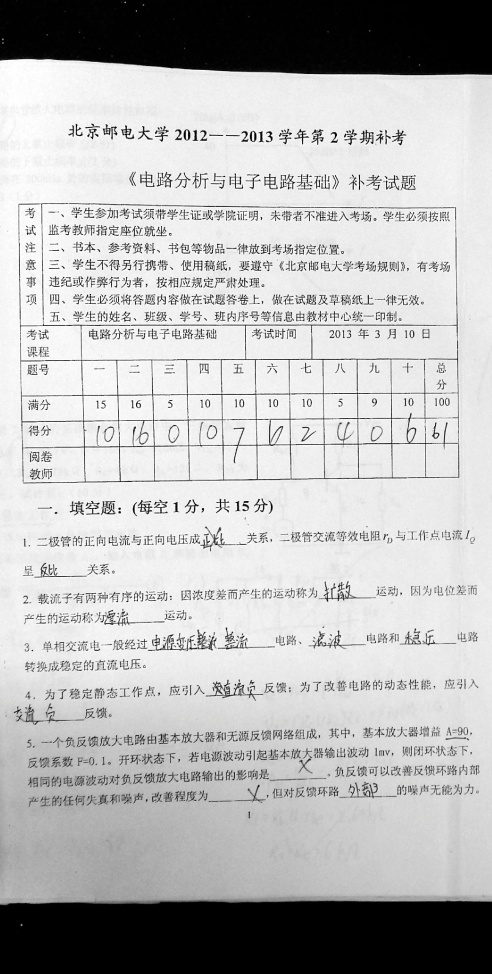 北京邮电大学 2012——2013 学年第 2 学期补考
《电路分析与电子电路基础》补考试题
考试注意事项
一、学生参加考试须带学生证或学院证明，未带者不准进入考场。学生必须按照
监考教师指定座位就坐。
二、书本、参考资料、书包等物品一律放到考场指定位置。
三、学生不得另行携带、使用稿纸，要遵守《北京邮电大学考场规则》，有考场
违纪或作弊行为者，按相应规定严肃处理。
四、学生必须将答题内容做在试题答卷上，做在试题及草稿纸上一律无效。
五、学生的姓名、班级、学号、班内序号等信息由教材中心统一印制。
考试课程 电路分析与电子电路基础 考试时间 2013 年 3 月 10 日
题号 一 二 三 四 五 六 七 八 九 十 总分
满分 15 16 5 10 10 10 10 5 9 10 100
得分 10 16 0 10 7 6 2 4 0 6 61
阅卷教师
一．填空题：(每空 1 分，共 15 分)
1. 二极管的正向电流与正向电压成 关系，二极管交流等效电阻 r_D 与工作点电流 I_Q
呈 反比 关系。
2. 载流子有两种有序的运动：因浓度差而产生的运动称为 扩散 运动，因为电位差而
产生的运动称为 漂流 运动。
3．单相交流电一般经过 整流 电路、 滤波 电路和 稳压 电路
转换成稳定的直流电压。
4．为了稳定静态工作点，应引入 直流负 反馈；为了改善电路的动态性能，应引入
交流负 反馈。
5．一个负反馈放大电路由基本放大器和无源反馈网络组成，其中，基本放大器增益 A=90，
反馈系数 F=0.1。开环状态下，若电源波动引起基本放大器输出波动 1mv，则闭环状态下，
相同的电源波动对负反馈放大电路输出的影响是 。负反馈可以改善反馈环路内部
产生的任何失真和噪声，改善程度为 ，但对反馈环路 外部 的噪声无能为力。
1